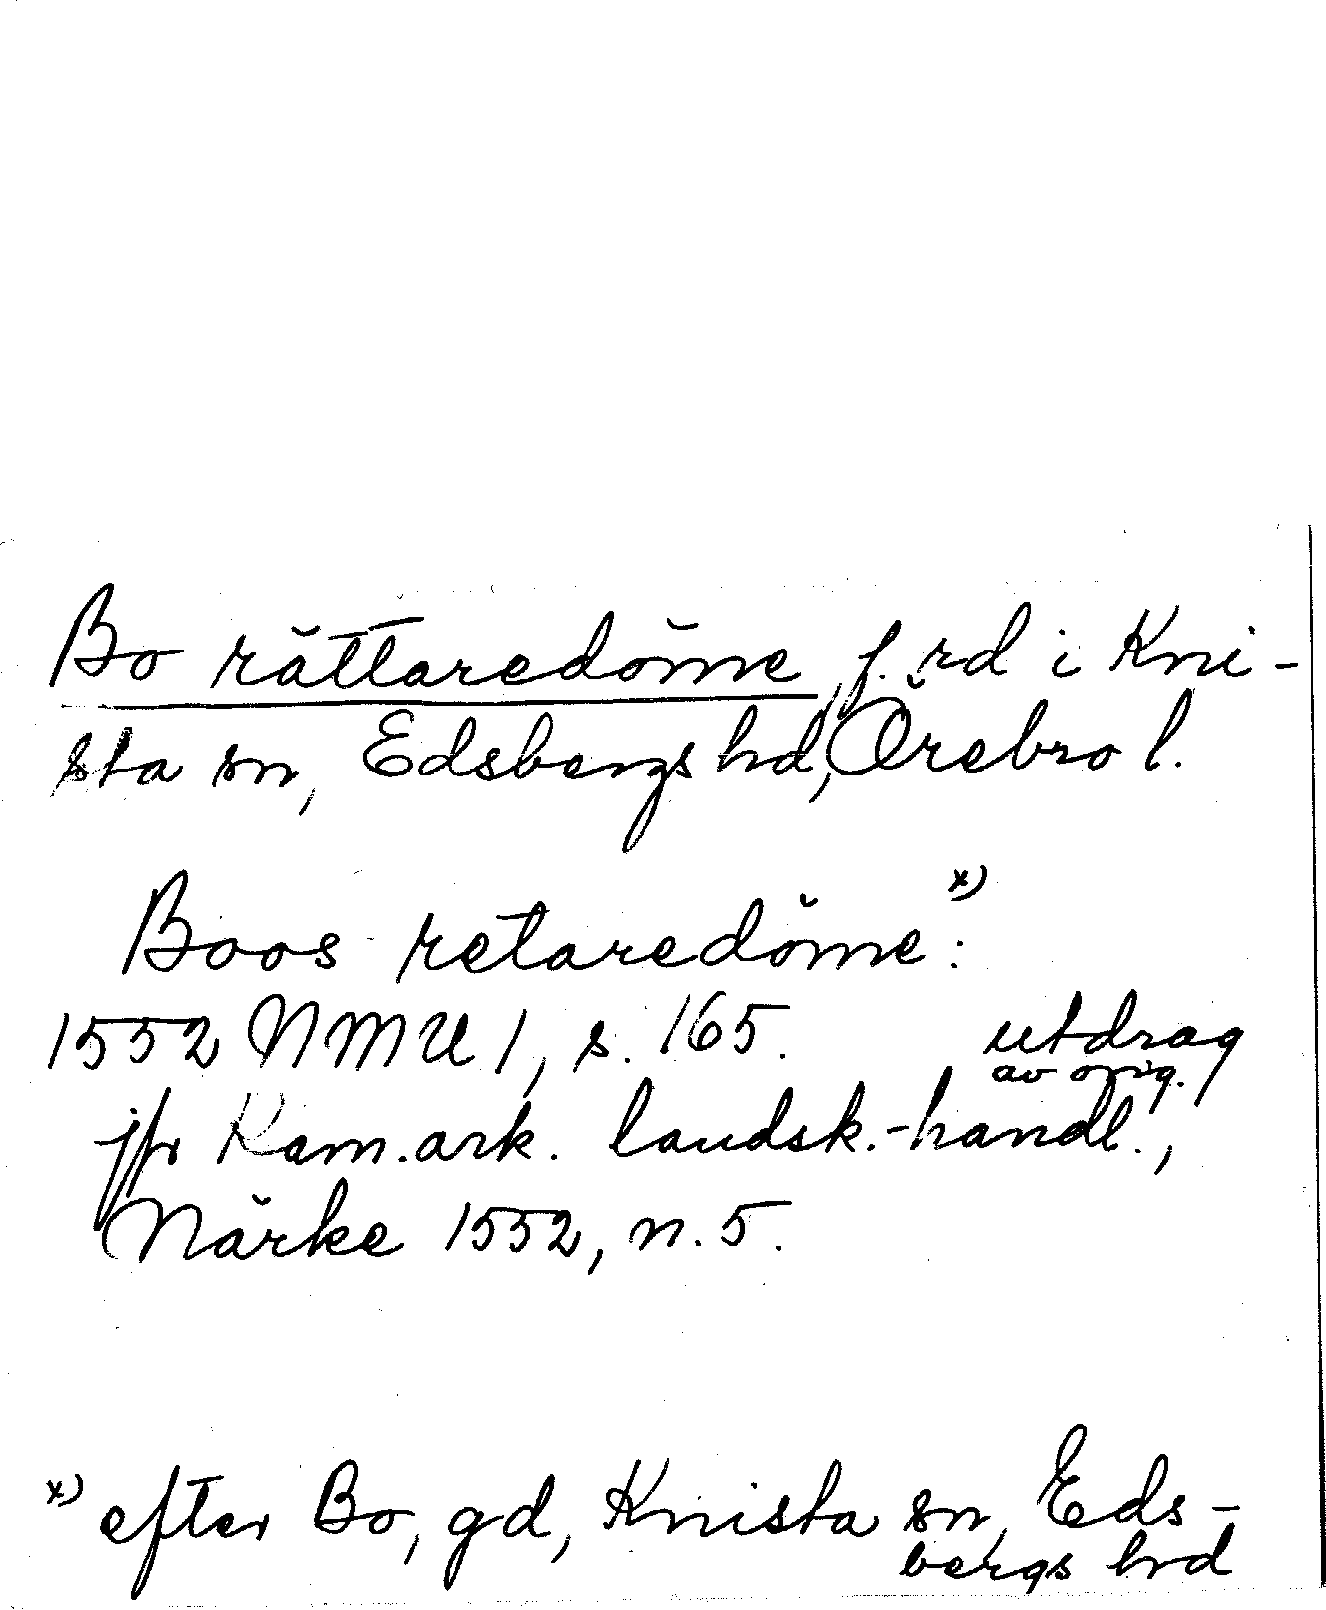 Bo rättaredöme, f. rd i Kni-
sta sn, Edsbergs hd, Örebro l.
Boos retaredöme x):
1552 NMU 1, s. 165. utdrag
av orig.
jfr Kam.ark. landsk.-handl.,
Närke 1552, n. 5.
x) efter Bo, gd, Knista sn, Eds-
bergs hrd